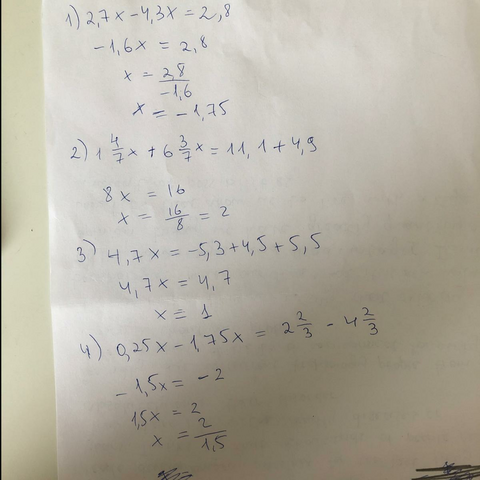 1) 2,7x - 4,3x = 2,8
-1,6x = 2,8
x = 2,8/-1,6
x = -1,75
2) 1 4/7 x + 6 3/7 x = 11,1 + 4,9
8x = 16
x = 16/8 = 2
3) 4,7x = -5,3 + 4,5 + 5,5
4,7x = 4,7
x = 1
4) 0,25x - 1,75x = 2 2/3 - 4 2/3
-1,5x = -2
1,5x = 2
x = 2/1,5